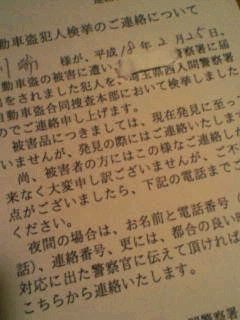 動車盗犯人検挙のご連絡について
様が、平成18年2月25日、
動車盗の被害に遭い、 警察署に届
出をされました犯人を、埼玉県西入間警察署
動車盗合同捜査本部において検挙しました
のでご連絡申し上げます。
被害品につきましては、現在発見に至って
いませんが、発見の際にはご連絡いたします
尚、被害者の方にはこの様なご連絡しか
来なく大変申し訳ございませんが、ご不
点がございましたら、下記の電話までご
ください。
夜間の場合は、お名前と電話番号(
話)、連絡番号、更には、都合の良い時
対応に出た警察官に伝えて頂ければ
こちらから連絡いたします。